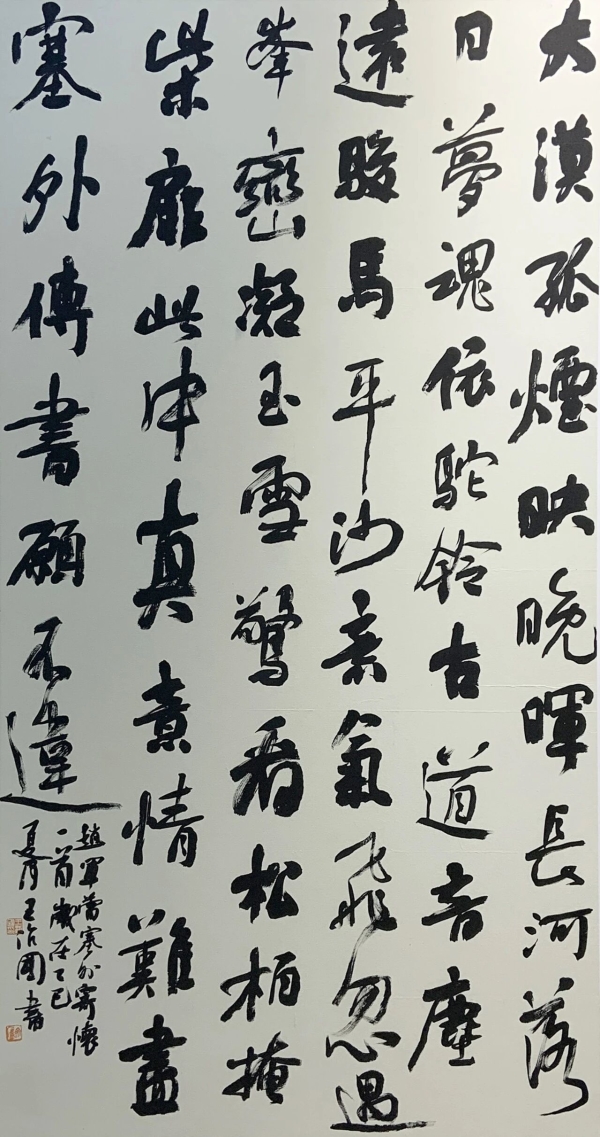 大漠孤煙映晚暉長河落
日夢魂依駝鈴古道音塵
遠駿馬平沙意氣飛忽遇
峯巒凝玉雪驚看松柏掩
柴扉此中真意情難盡
塞外傳書願不違
趙軍蕾塞外寄懷
一首歲在乙巳
夏月王治國書